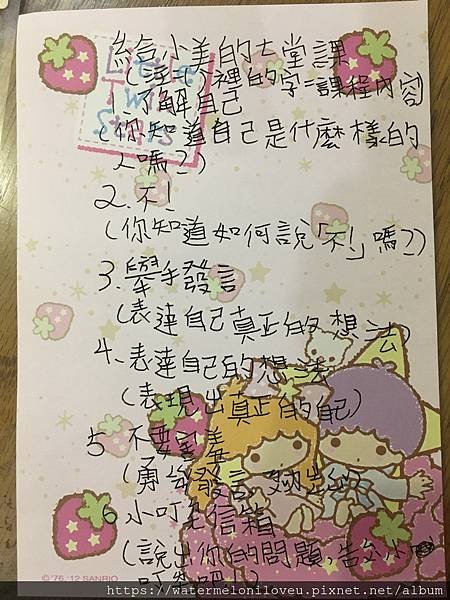 給小美的七堂課
(注:( )裡的字=課程內容)
1.了解自己
(你知道自己是什麼樣的
人嗎?)
2.不!
(你知道如何說「不!」嗎?)
3.舉手發言
(表達自己真正的想法)
4.表達自己的想法
(表現出真正的自己)
5.不要害羞
(勇敢發言
6.小叮先信箱
(說出你的問題,告訴小
叮先吧!)
Little
Twin
Stars
© '76, '12 SANRIO
https://watermeloniloveu.pixnet.net/album